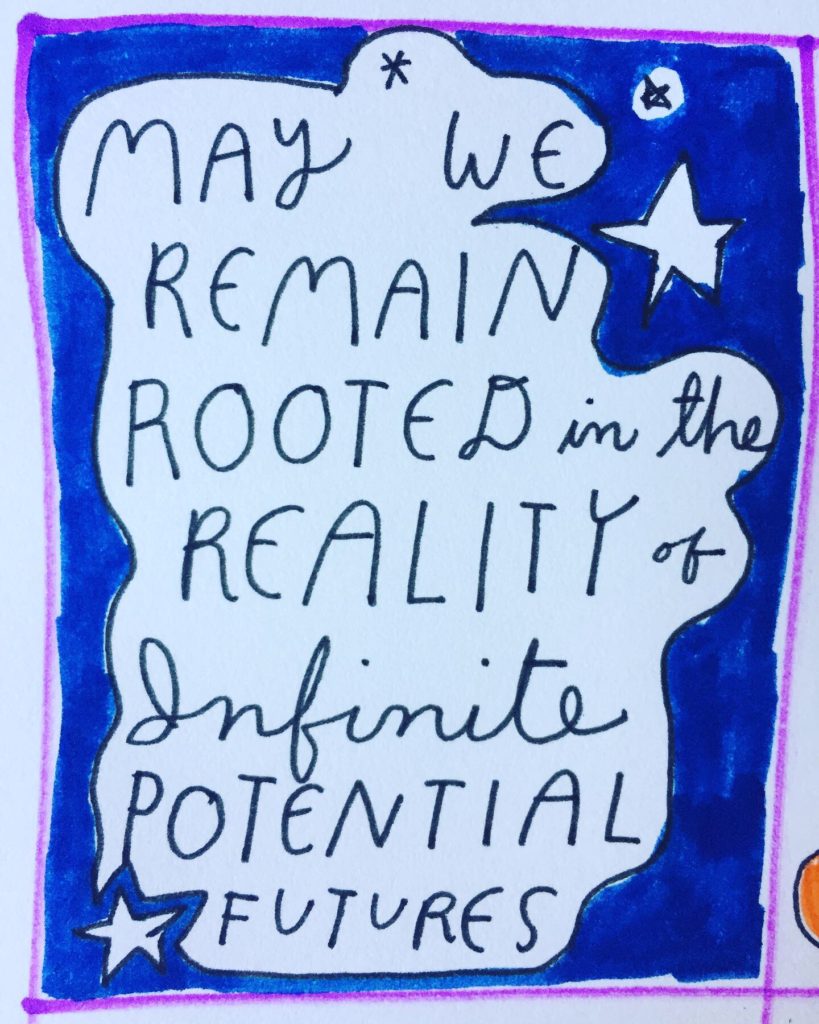 *
MAY WE
REMAIN
ROOTED in the
REALITY of
Infinite
POTENTIAL
FUTURES